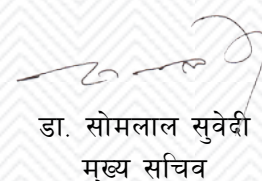 डा. सोमलाल सुवेदी
मुख्य सचिव